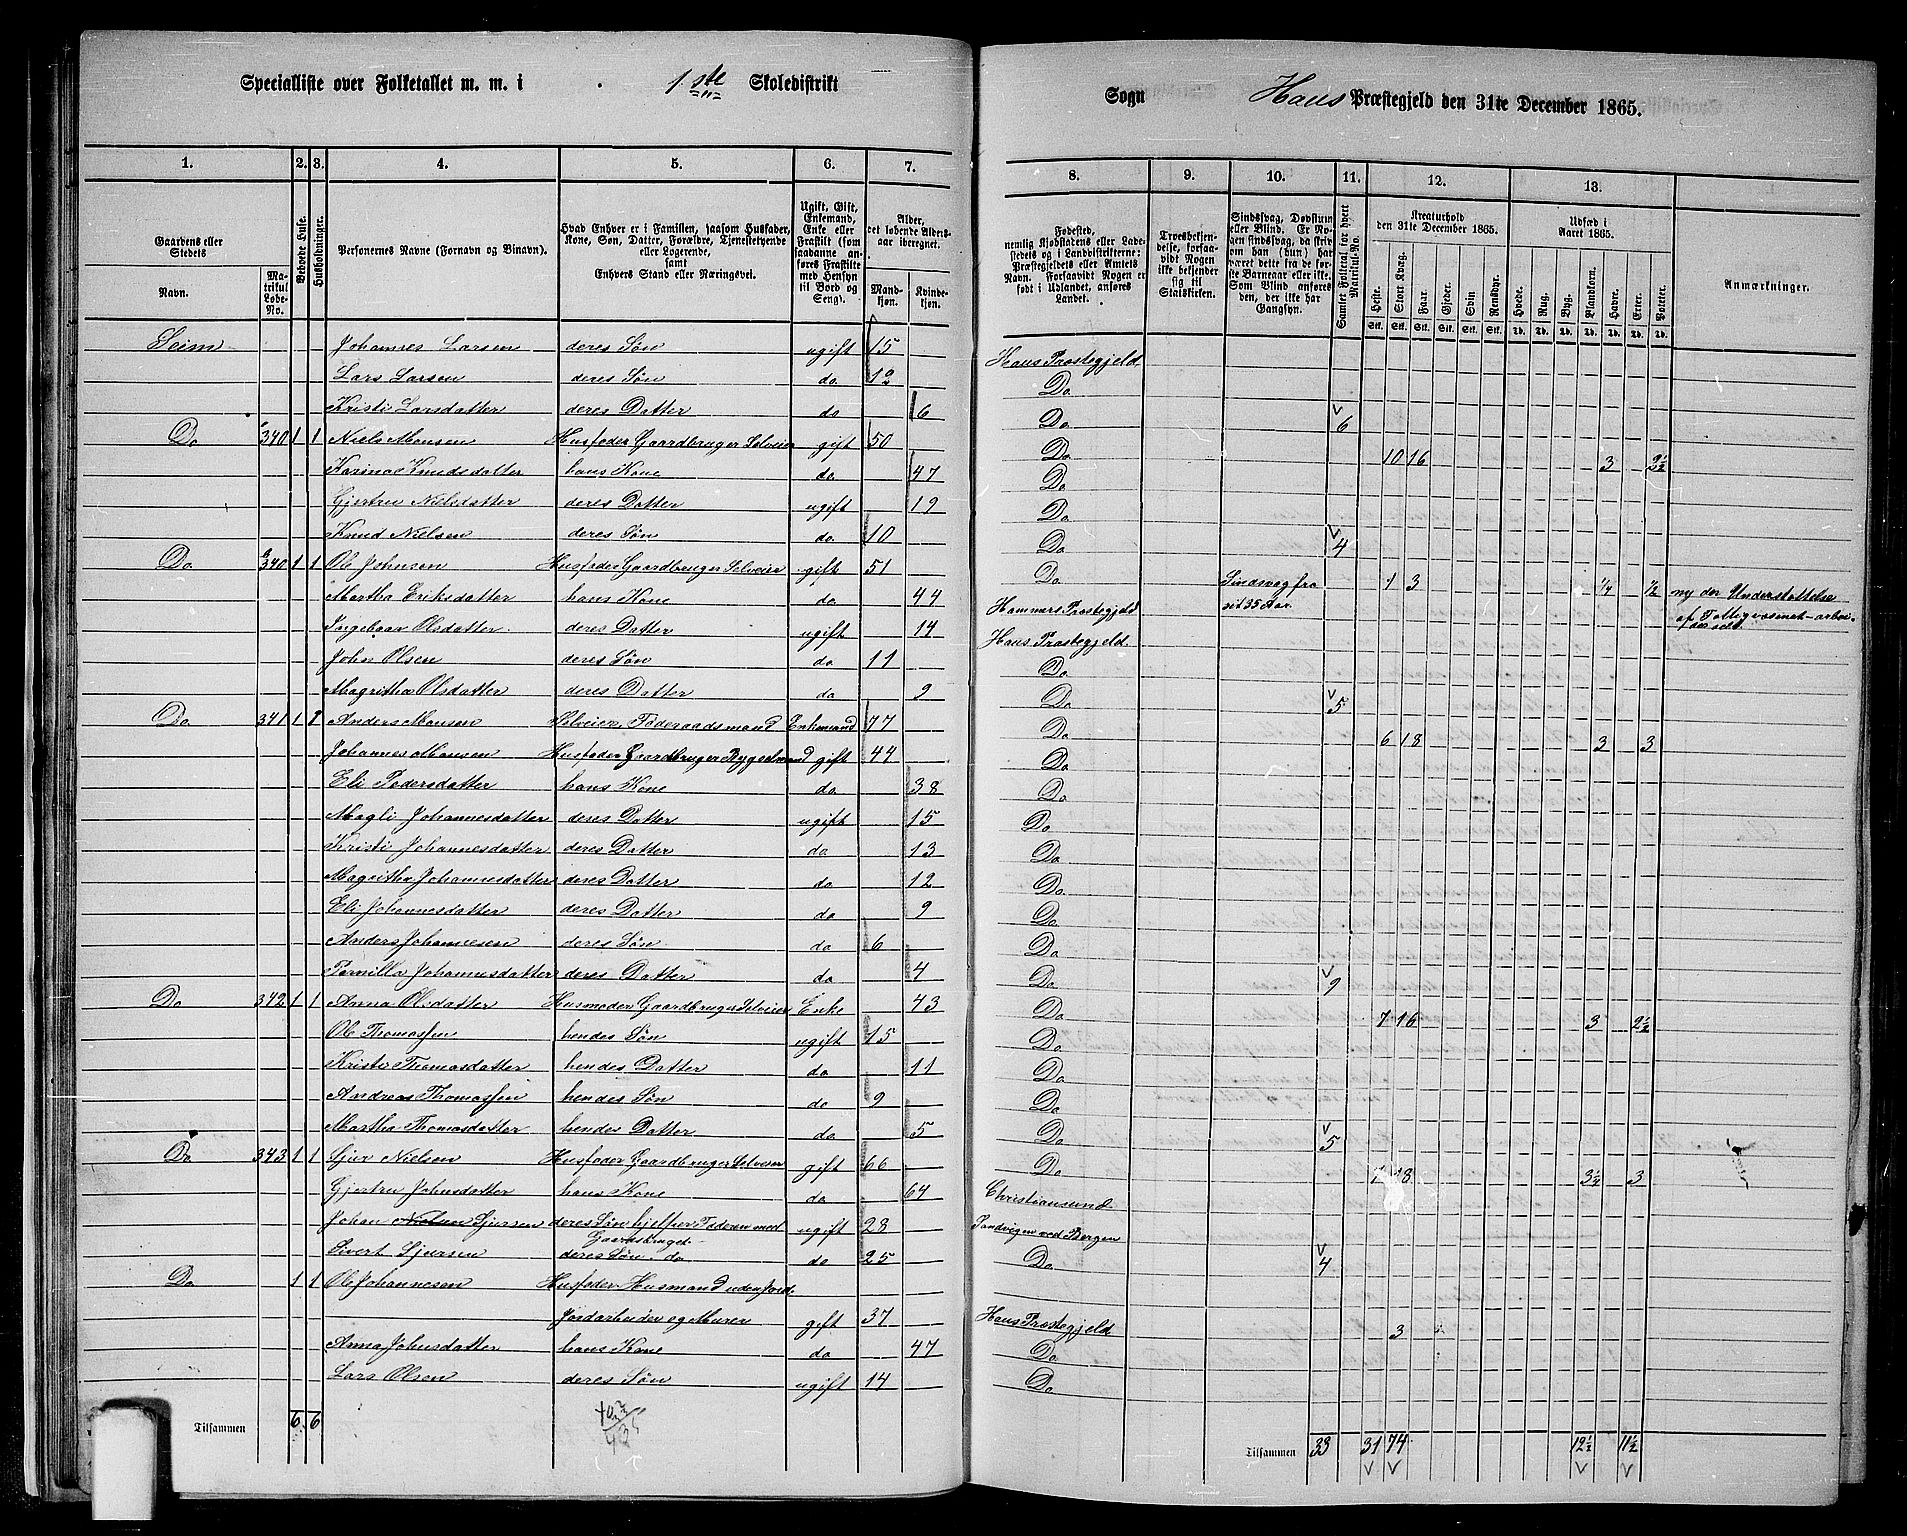 Specialliste over Folketallet m. m. i 1ste Skoledistrikt
Sogn Haus Præstegjeld den 31te December 1865.
1. 2. 3. 4. 5. 6. 7. 8. 9. 10. 11. 12. 13.
Gaardens eller Stedets
Navn.
Matrikul Løbe-No.
Bebodde Huse.
Husholdninger.
Personernes Navne (Fornavn og Binavn).
Hvad Enhver er i Familien, saasom Husfader, Kone, Søn, Datter, Forældre, Tjenestetyende eller Logerende, samt Enhvers Stand eller Næringsvei.
Ugift, Gift, Enkemand, Enke eller Fraskilt (som saadanne anføres Fraskilte med Hensyn til Bord og Seng).
Alder, det løbende Alders-aar iberegnet.
Mandkjøn. Kvindekjøn.
Fødested, nemlig Kjøbstadens eller Ladestedets eller i Landdistrikterne: Præstegjeldets eller Amtets Navn. Forsaavidt Nogen er født i Udlandet, anføres Landet.
Troesbekjendelse, forsaavidt Nogen ikke bekjender sig til Statskirken.
Sindssvag, Døvstum eller Blind. Er Nogen sindssvag, da skriv om han (hun) har været dette fra de første Barneaar eller ikke. Som Blind anføres den, der ikke har Gangsyn.
Samlet Folketal for hvert Matrikul-No.
Kreaturhold den 31te December 1865.
Heste. Stort Kvæg. Faar. Gjeder. Svin Rensdyr.
Stk. Stk. Stk. Stk. Stk. Stk.
Udsæd i Aaret 1865.
Hvede. Rug. Byg. Blandkorn. Havre. Erter. Poteter.
Td. Td. Td. Td. Td. Td. Td.
Anmærkninger.
Seim Johannes Larsen deres Søn ugift 15 Haus Præstegjeld
Lars Larsen deres Søn do 12 Do
Kristi Larsdatter deres Datter do 6 Do 6
Do 340 1 1 Niels Monsen Husfader Gaardbruger Selveier gift 50 Do 10 16 3 3½
Karinas Knudsdatter hans Kone do 47 Do
Gjertru Nielsdatter deres Datter ugift 19 Do
Knud Nielsen deres Søn do 10 Do 4
Do 340 1 1 Ole Johnsen Husfader Gaardbruger Selveier gift 51 Do 1 3 ¼ ½
Martha Eriksdatter hans Kone do 44 Hammers Præstegjeld Sindsvag fra sit 35 Aar. ny der Understøttelse
Ingeboar Olsdatter deres Datter ugift 14 Haus Præstegjeld
John Olsen deres Søn do 11 Do
Magritha Olsdatter deres Datter do 9 Do 5
Do 341 1 1 Anders Monsen Selveier Føderaadsmand Enkemand 77 Do 6 18 3 3
Johannes Monsen Husfader Gaardbruger Byggselmand gift 44 Do
Eli Pedersdatter hans Kone do 38 Do
Magli Johannesdatter deres Datter ugift 15 Do
Kristi Johannesdatter deres Datter do 13 Do
Magritha Johannesdatter deres Datter do 12 Do
Eli Johannesdatter deres Datter do 9 Do
Anders Johannesen deres Søn do 6 Do
Pernilla Johannesdatter deres Datter do 4 Do 9
Do 342 1 1 Anna Olsdatter Husmoder Gaardbruger Selveier Enke 43 Do 7 16 3 2½
Ole Thomassen hendes Søn ugift 15 Do
Kristi Thomasdatter hendes Datter do 11 Do
Andreas Thomassen hendes Søn do 9 Do
Martha Thomasdatter hendes Datter do 5 Do 5
Do 343 1 1 Sjur Nielsen Husfader Gaardbruger Selveier gift 66 Do 7 18 3½ 3
Gjertru Johnsdatter hans Kone do 64 Christiansund
Johan Nielsen Sjursen deres Søn hjelper Faderen med Gaardsbruget ugift 28 Sandvigen ved Bergen
Sivert Sjursen deres Søn do do 25 Do 4
Do 1 1 Ole Johannesen Husfader Husmand uden Jord
Jordarbeider og Murer gift 37 Haus Præstegjeld 3
Anna Johnsdatter hans Kone do 47 Do
Lars Olsen deres Søn ugift 14 Do
Tilsammen 6 6
Tilsammen 33 31 74 12½ 11½